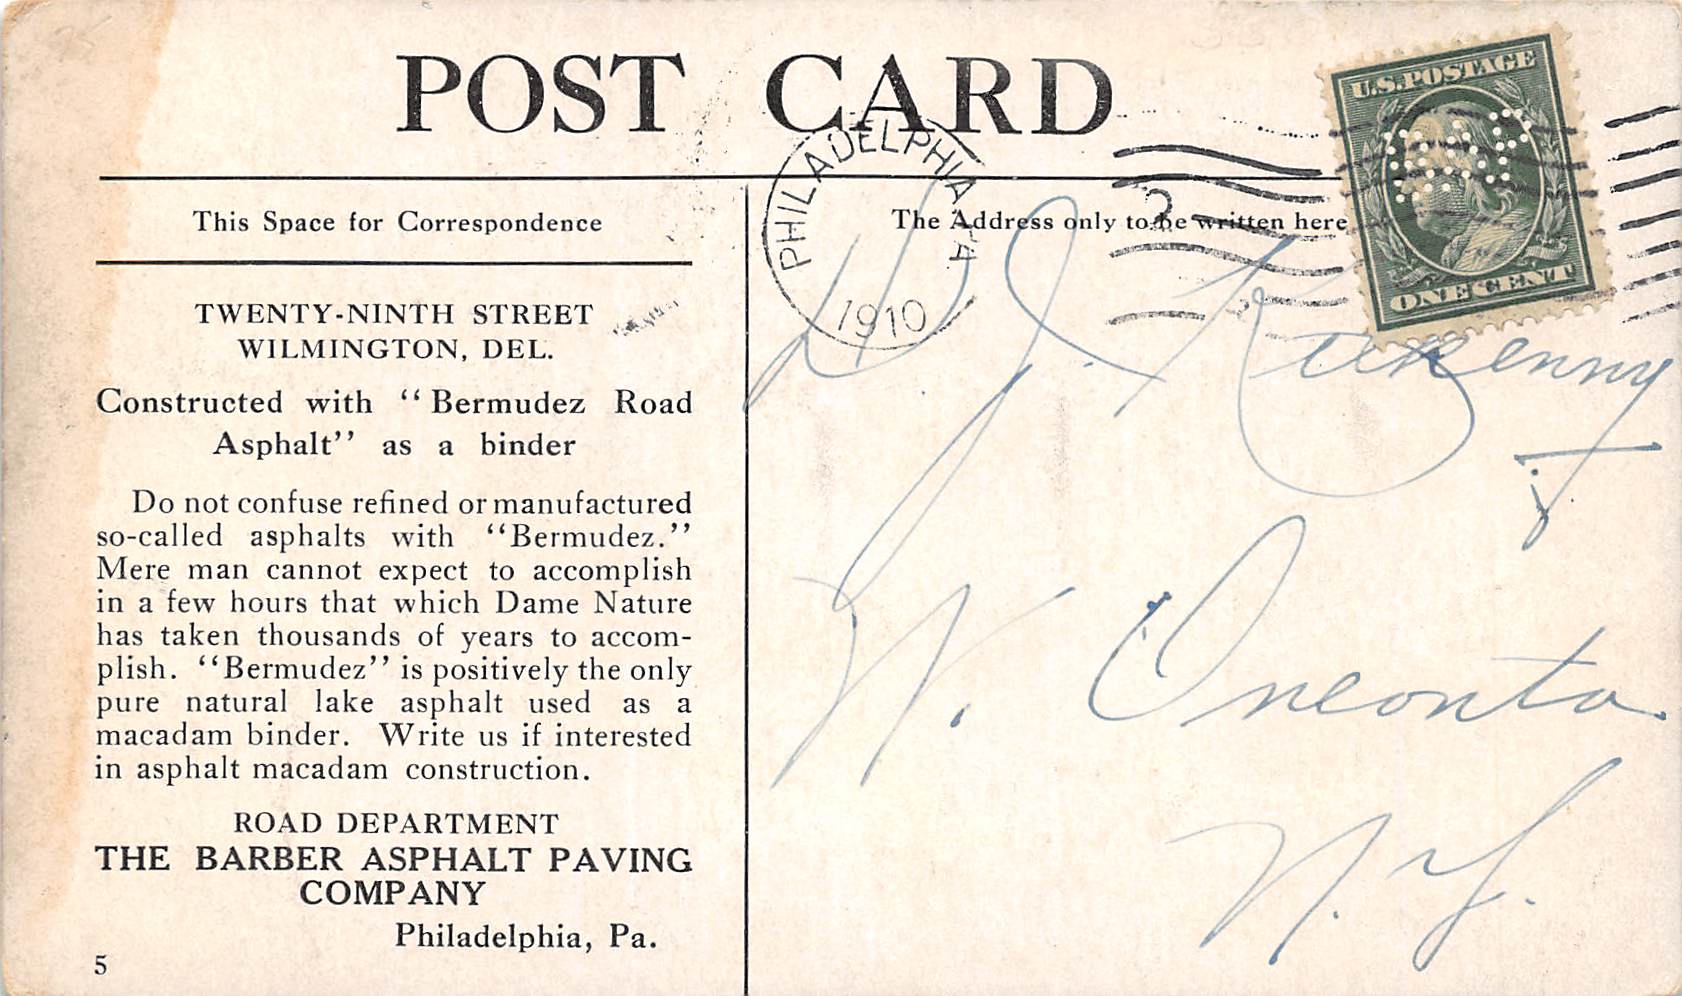 POST CARD
U.S. POSTAGE
ONE CENT
PHILADELPHIA, PA
1910
This Space for Correspondence
The Address only to be written here
TWENTY-NINTH STREET
WILMINGTON, DEL.
Constructed with “Bermudez Road
Asphalt” as a binder
Do not confuse refined or manufactured
so-called asphalts with “Bermudez.”
Mere man cannot expect to accomplish
in a few hours that which Dame Nature
has taken thousands of years to accom-
plish. “Bermudez” is positively the only
pure natural lake asphalt used as a
macadam binder. Write us if interested
in asphalt macadam construction.
ROAD DEPARTMENT
THE BARBER ASPHALT PAVING
COMPANY
Philadelphia, Pa.
5
W. Oneonta.
N.Y.